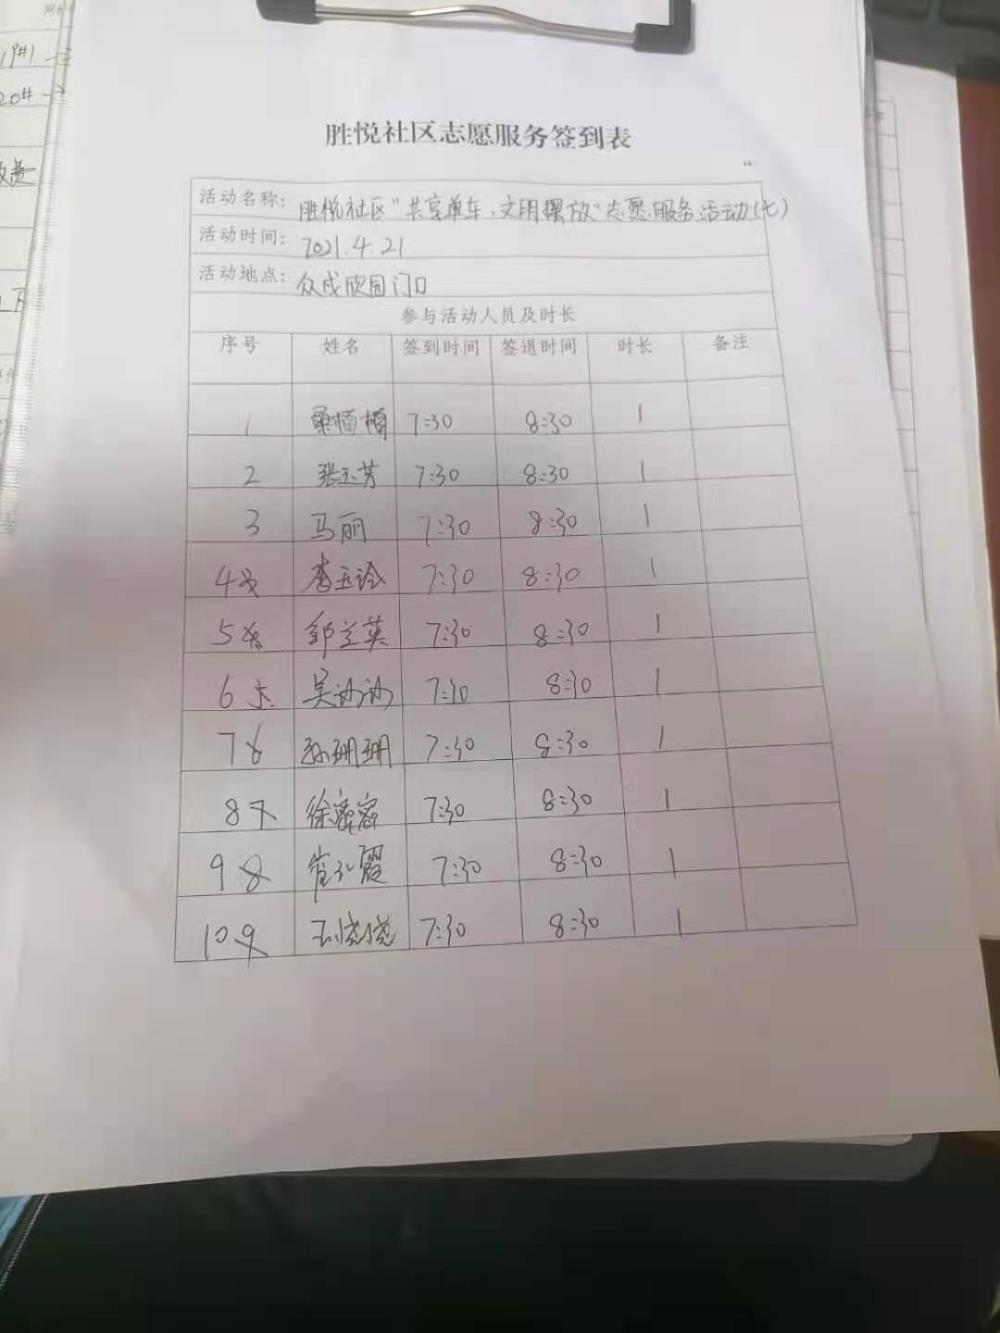 胜悦社区志愿服务签到表
活动名称: 胜悦社区"共享单车,文明摆放"志愿服务活动(七)
活动时间: 2021.4.21
活动地点: 众成欣园门口
参与活动人员及时长
序号 姓名 签到时间 签退时间 时长 备注
1 7:30 8:30 1
2 张玉芳 7:30 8:30 1
3 马丽 7:30 8:30 1
4 李玉玲 7:30 8:30 1
5 邹兰英 7:30 8:30 1
6 7:30 8:30 1
7 孙珊珊 7:30 8:30 1
8 徐蜜蜜 7:30 8:30 1
9 7:30 8:30 1
10 王晓晓 7:30 8:30 1
19#1
20#